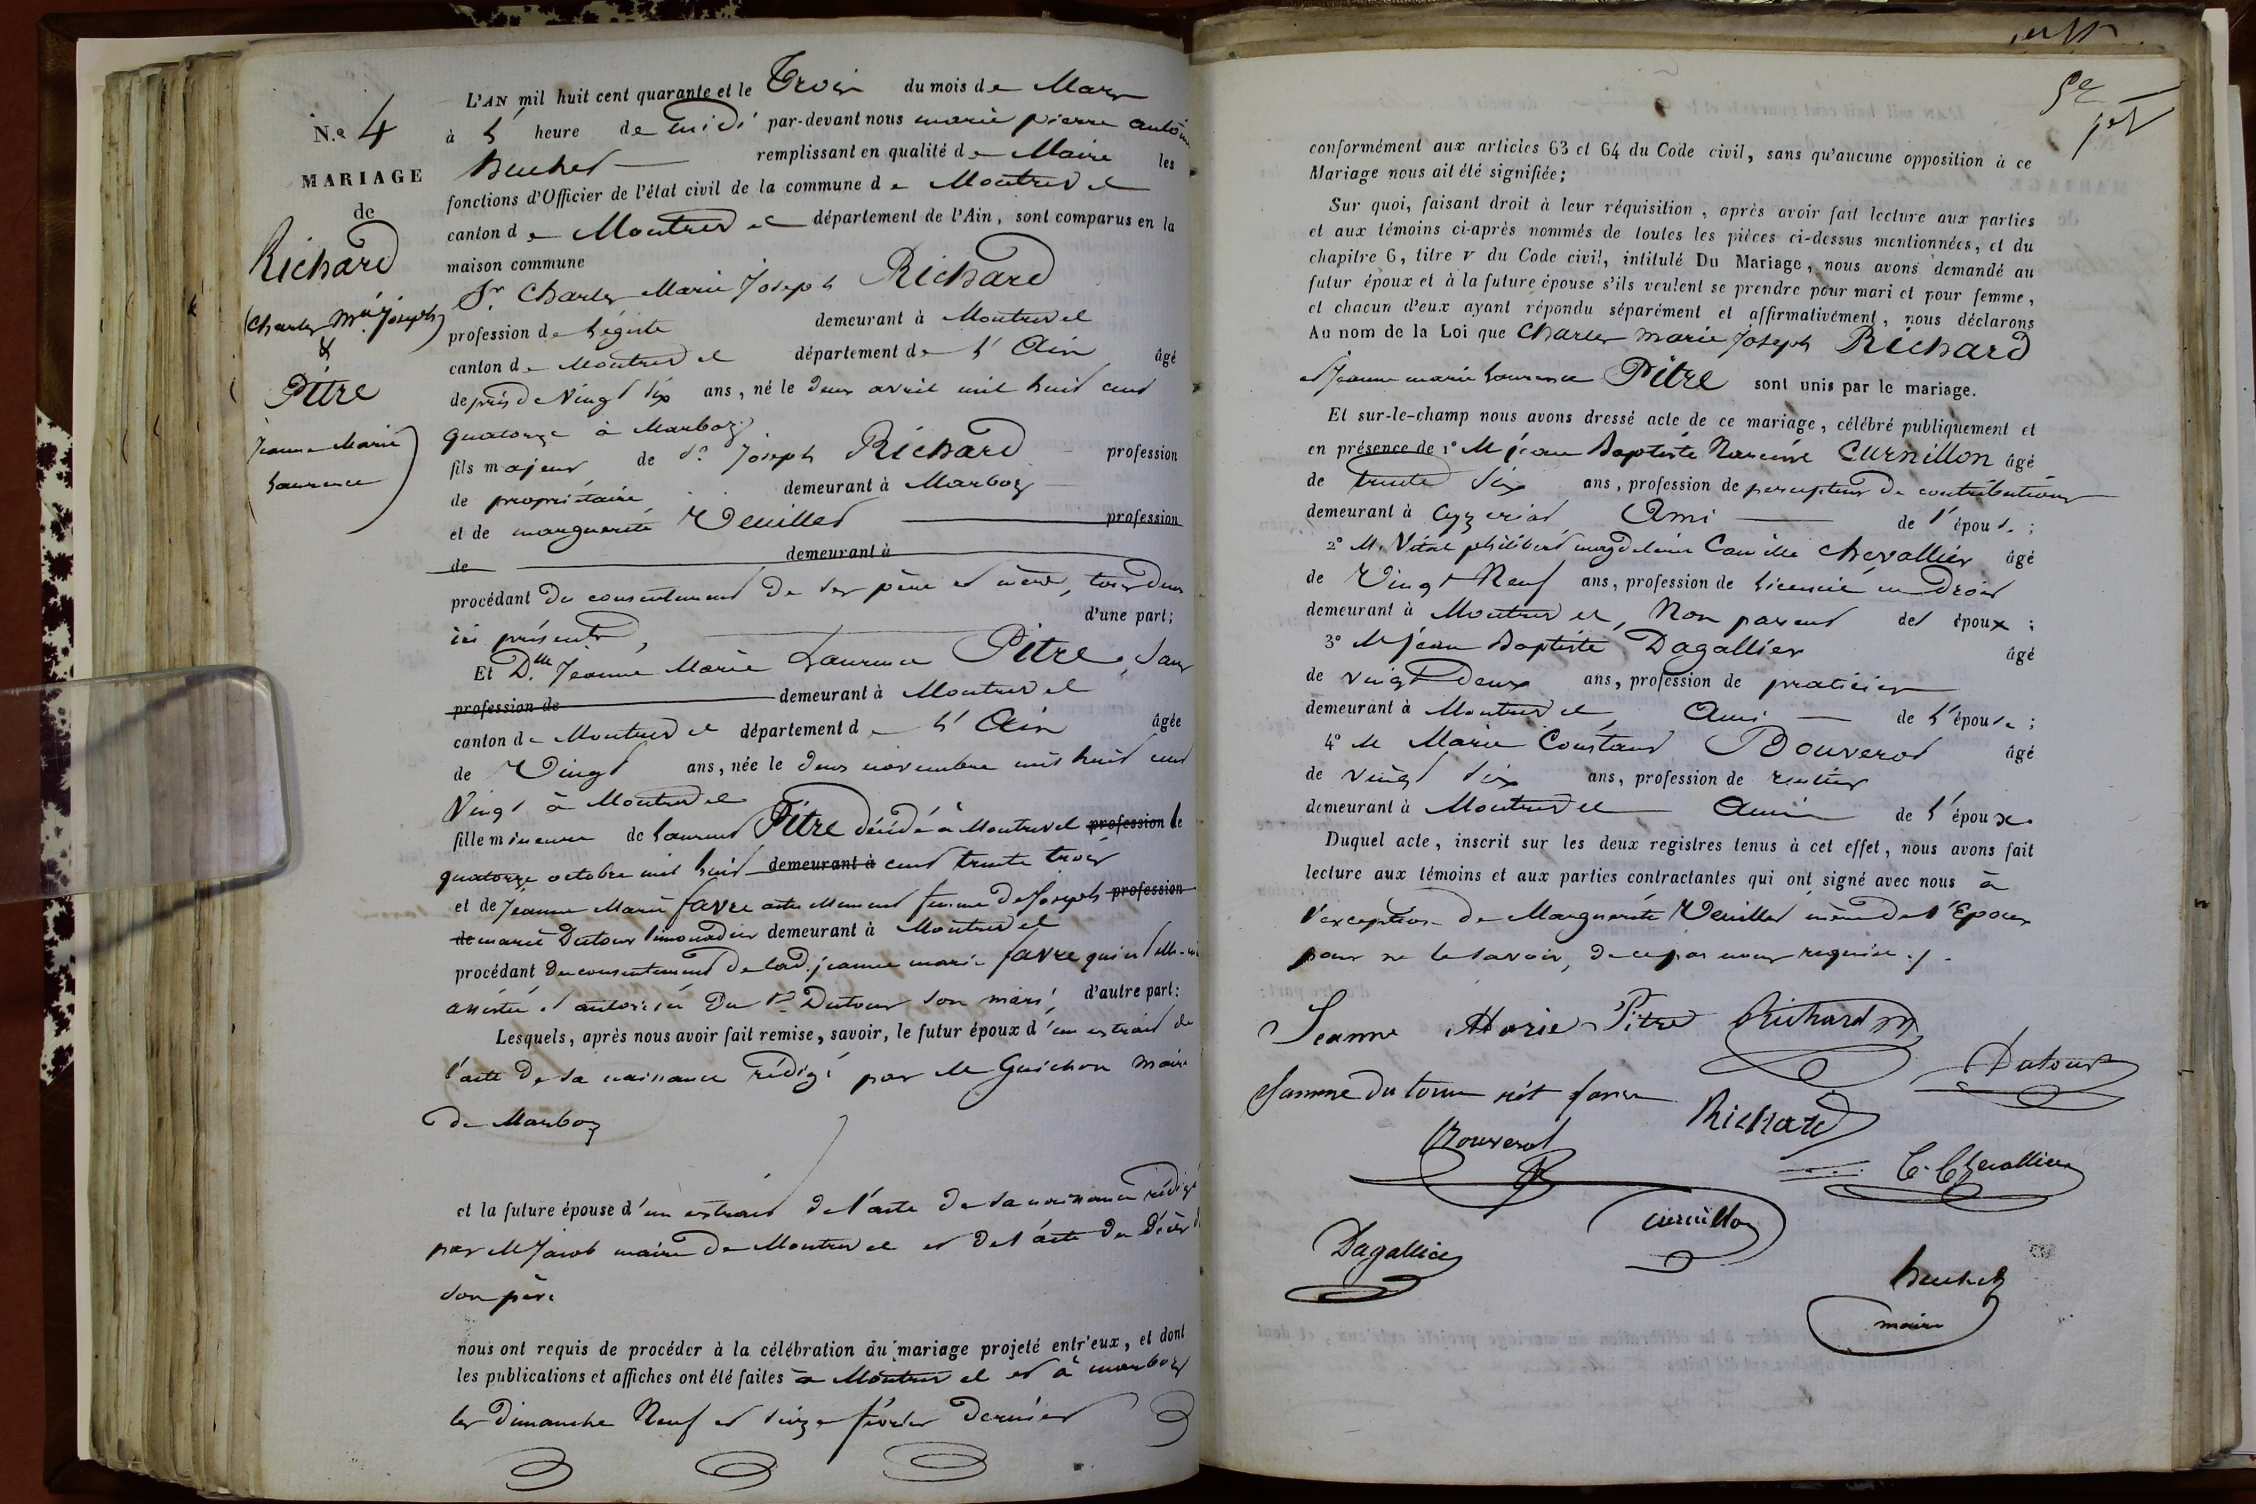 L'AN mil huit cent quarante et le Trois du mois de Mars
N.° 4
à l' heure de midi par-devant nous marie pierre antoine
Buchet remplissant en qualité de Maire les
MARIAGE
fonctions d'Officier de l'état civil de la commune de Montrevel
de
canton de Montrevel département de l'Ain, sont comparus en la
maison commune
Richard
(Charles M.ie Joseph)
&
Pitre
Jeanne Marie
Laurence
Sr Charles Marie Joseph Richard
profession de Légiste demeurant à Montrevel
canton de Montrevel département de l'Ain âgé
de près de Vingt six ans, né le deux avril mil huit cent
quatorze à Marboz
fils majeur de Sr Joseph Richard profession
de propriétaire demeurant à Marboz
et de marguerite Veuillet profession
de demeurant à
procédant du consentement de ses père et mère, tous deux
ici présents, d'une part;
Et Dlle Jeanne Marie Laurence Pitre, sans
profession de demeurant à Montrevel
canton de Montrevel département de l'Ain âgée
de Vingt ans, née le deux novembre mil huit cent
Vingt à Montrevel
fille mineure de Laurent Pitre décédé à Montrevel profession le
quatorze octobre mil huit demeurant à cent trente trois
et de Jeanne Marie favre actuellement femme de Joseph profession
de marie Dutour limonadier demeurant à Montrevel
procédant du consentement de lad. jeanne marie favre qui est elle-
assistée et autorisée du Sr Dutour son mari, d'autre part:
Lesquels, après nous avoir fait remise, savoir, le futur époux d'un extrait de
l'acte de sa naissance rédigé par M Guichon maire
de Marboz
et la future épouse d'un extrait de l'acte de sa naissance rédigé
par M Jacob maire de Montrevel et de l'acte du décès d
son père
nous ont requis de procéder à la célébration du mariage projeté entr'eux, et dont
les publications et affiches ont été faites à Montrevel et à marboz
les dimanche Neuf et seize février dernier
conformément aux articles 63 et 64 du Code civil, sans qu'aucune opposition à ce
Mariage nous ait été signifiée;
Sur quoi, faisant droit à leur réquisition, après avoir fait lecture aux parties
et aux témoins ci-après nommés de toutes les pièces ci-dessus mentionnées, et du
chapitre 6, titre v du Code civil, intitulé Du Mariage, nous avons demandé au
futur époux et à la future épouse s'ils veulent se prendre pour mari et pour femme,
et chacun d'eux ayant répondu séparément et affirmativement, nous déclarons
Au nom de la Loi que Charles marie Joseph Richard
et Jeanne marie Laurence Pitre sont unis par le mariage.
Et sur-le-champ nous avons dressé acte de ce mariage, célébré publiquement et
en présence de 1° M jean Baptiste Narcisse Curnillon âgé
de trente six ans, profession de percepteur de contributions
demeurant à Ceyzeriat Ami de l'épouse;
2° M. Vital philibert magdeleine Camille Chevallier âgé
de Vingt Neuf ans, profession de Licencié en Droit
demeurant à Montrevel, Non parent des époux;
3° M jean Baptiste Dagallier âgé
de vingt Deux ans, profession de praticien
demeurant à Montrevel, Ami de l'épouse;
4° M Marie Constant Bouverot âgé
de vingt six ans, profession de rentier
demeurant à Montrevel Ami de l'époux.
Duquel acte, inscrit sur les deux registres tenus à cet effet, nous avons fait
lecture aux témoins et aux parties contractantes qui ont signé avec nous à
l'exception de Marguerite Veuillet mère de l'Epoux
pour ne le savoir, de ce par nous requise./.
Jeanne Marie Pitre Richard
Dutour
famme du tour nét favre
Richard
Bouverot
C. Chevallier
Curnillon
Dagallier
Buchet
maire